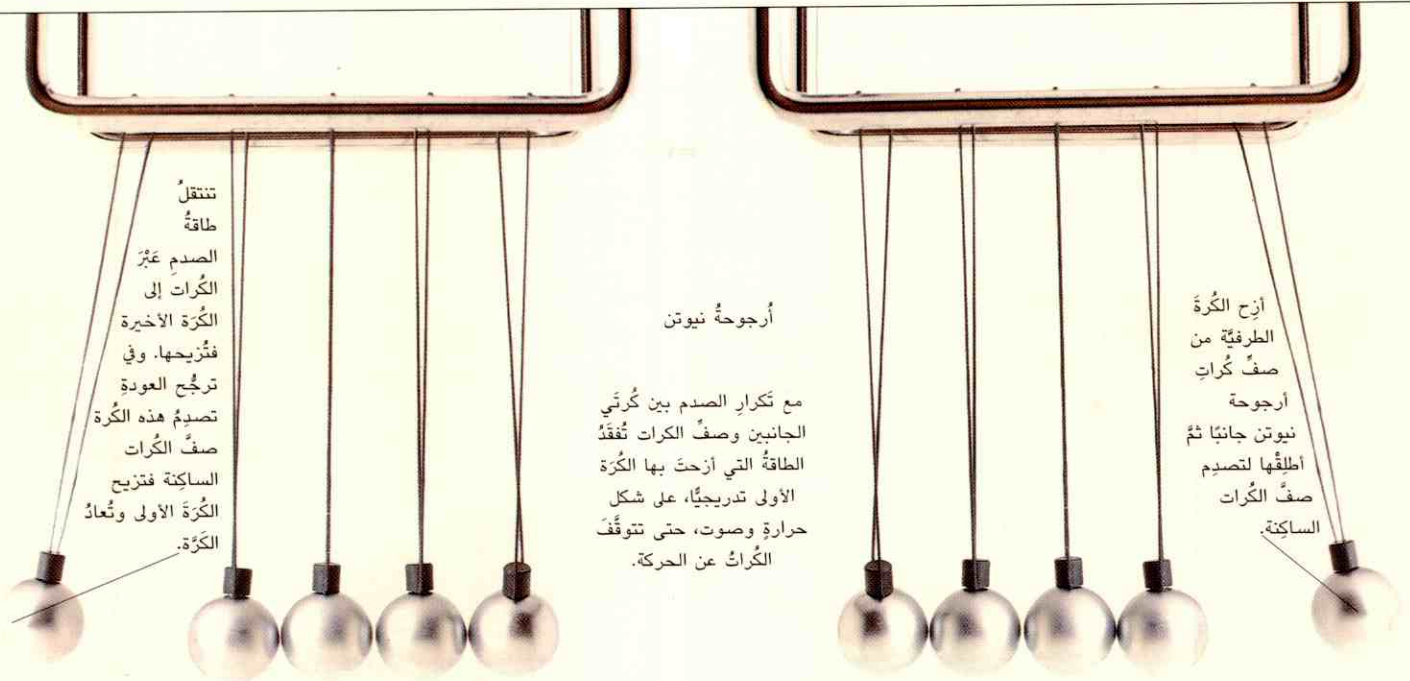 أزِح الكُرةَ
الطرفيَّة من
صفِّ كُراتِ
أرجوحة
نيوتن جانبًا ثمَّ
أطلِقْها لتصدِم
صفَّ الكُرات
الساكِنة.
أُرجوحةُ نيوتن
مع تَكرارِ الصدم بين كُرتَي
الجانبين وصفِّ الكرات تُفقَدُ
الطاقةُ التي أزحتَ بها الكُرَة
الأولى تدريجيًّا، على شكل
حرارةٍ وصوت، حتى تتوقَّفَ
الكُراتُ عن الحركة.
تنتقلُ
طاقةُ
الصدمِ عَبْرَ
الكُرات إلى
الكُرَة الأخيرة
فتُزيحها. وفي
ترجُّح العودةِ
تصدِمُ هذه الكُرة
صفَّ الكُرات
الساكِنة فتزيح
الكُرَةَ الأولى وتُعادُ
الكَرَّة.